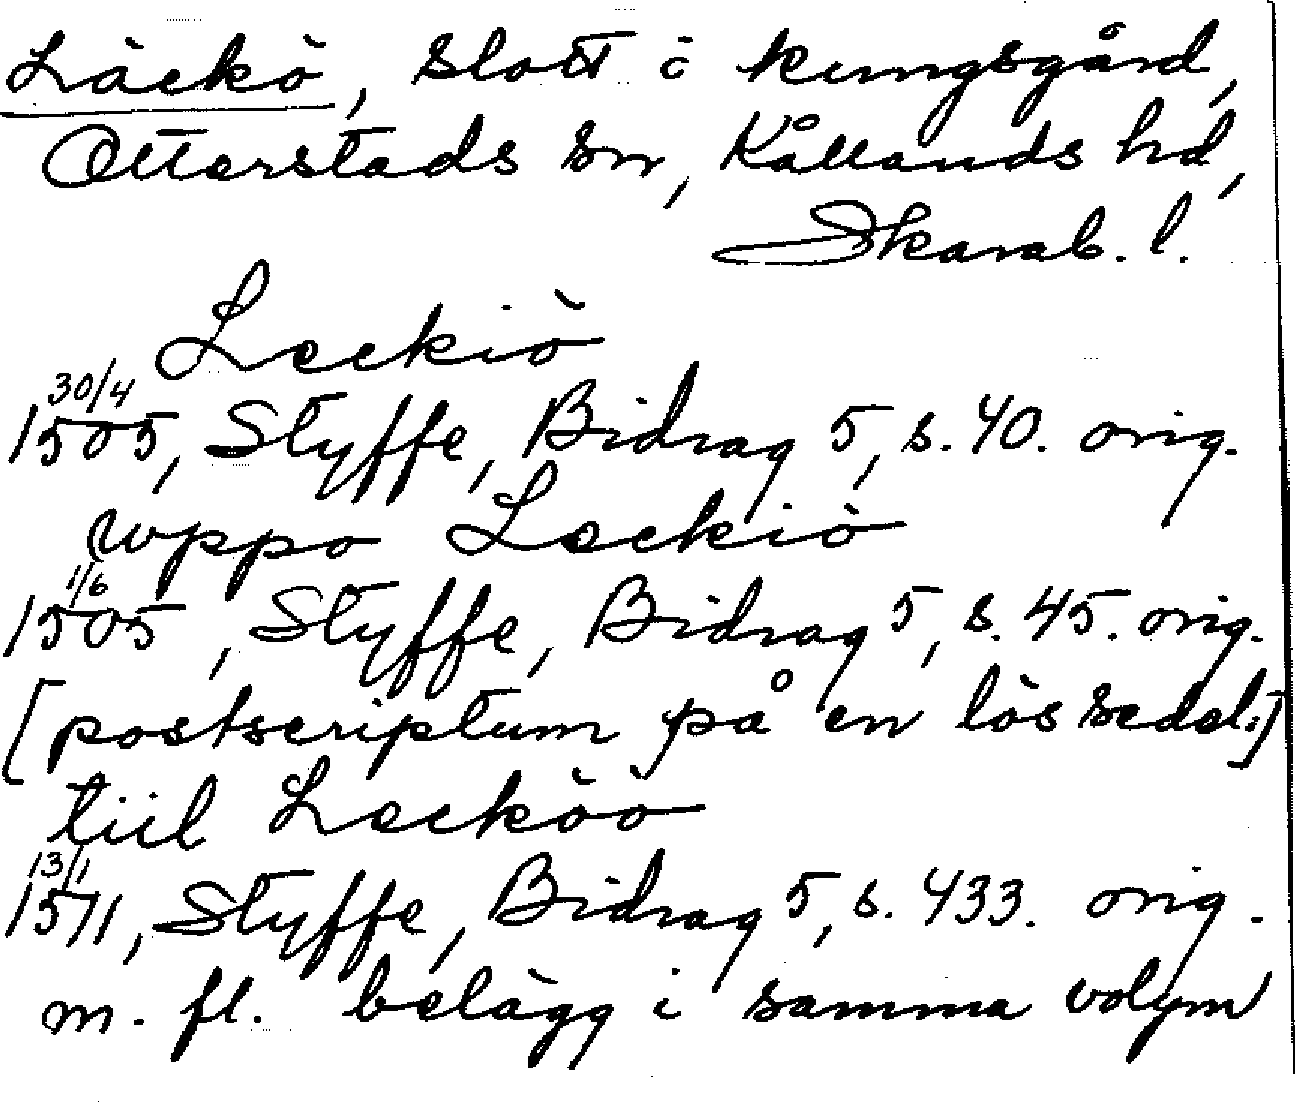 Läckö, slott i kungsgård,
Otterstads sn, Kållands hd,
Skarab. l.
Leckiö
30/4
1505, Styffe, Bidrag 5, s. 40. orig.
uppo Leckiö
1/6
1505, Styffe, Bidrag 5, s. 45. orig.
[postscriptum på en lös sedel.]
tiil Lecköö
13/1
1511, Styffe, Bidrag 5, s. 433. orig.
m. fl. belägg i samma volym